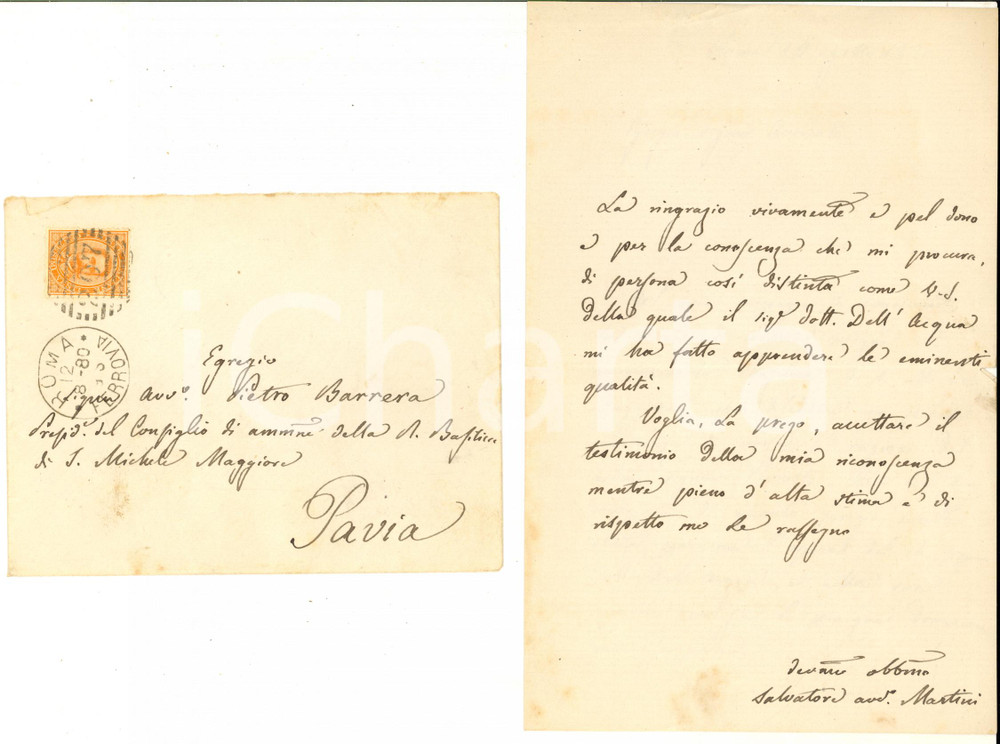 ROMA
FERROVIA
12
8-80
Egregio
Sigr Avvo. Pietro Barrera
Preside. del Consiglio di ammne della R. Basilica
di S. Michele Maggiore
Pavia
La ringrazio vivamente e pel dono
e per la conoscenza che mi procura,
di persona così distinta come V.S.
della quale il sigr dott. Dell'Acqua
mi ha fatto apprendere le eminenti
qualità.
Voglia, La prego, accettare il
testimonio della mia riconoscenza
mentre pieno d'alta stima e di
rispetto me Le rassegno
devmo obbmo
Salvatore avvo. Martini
iCharta